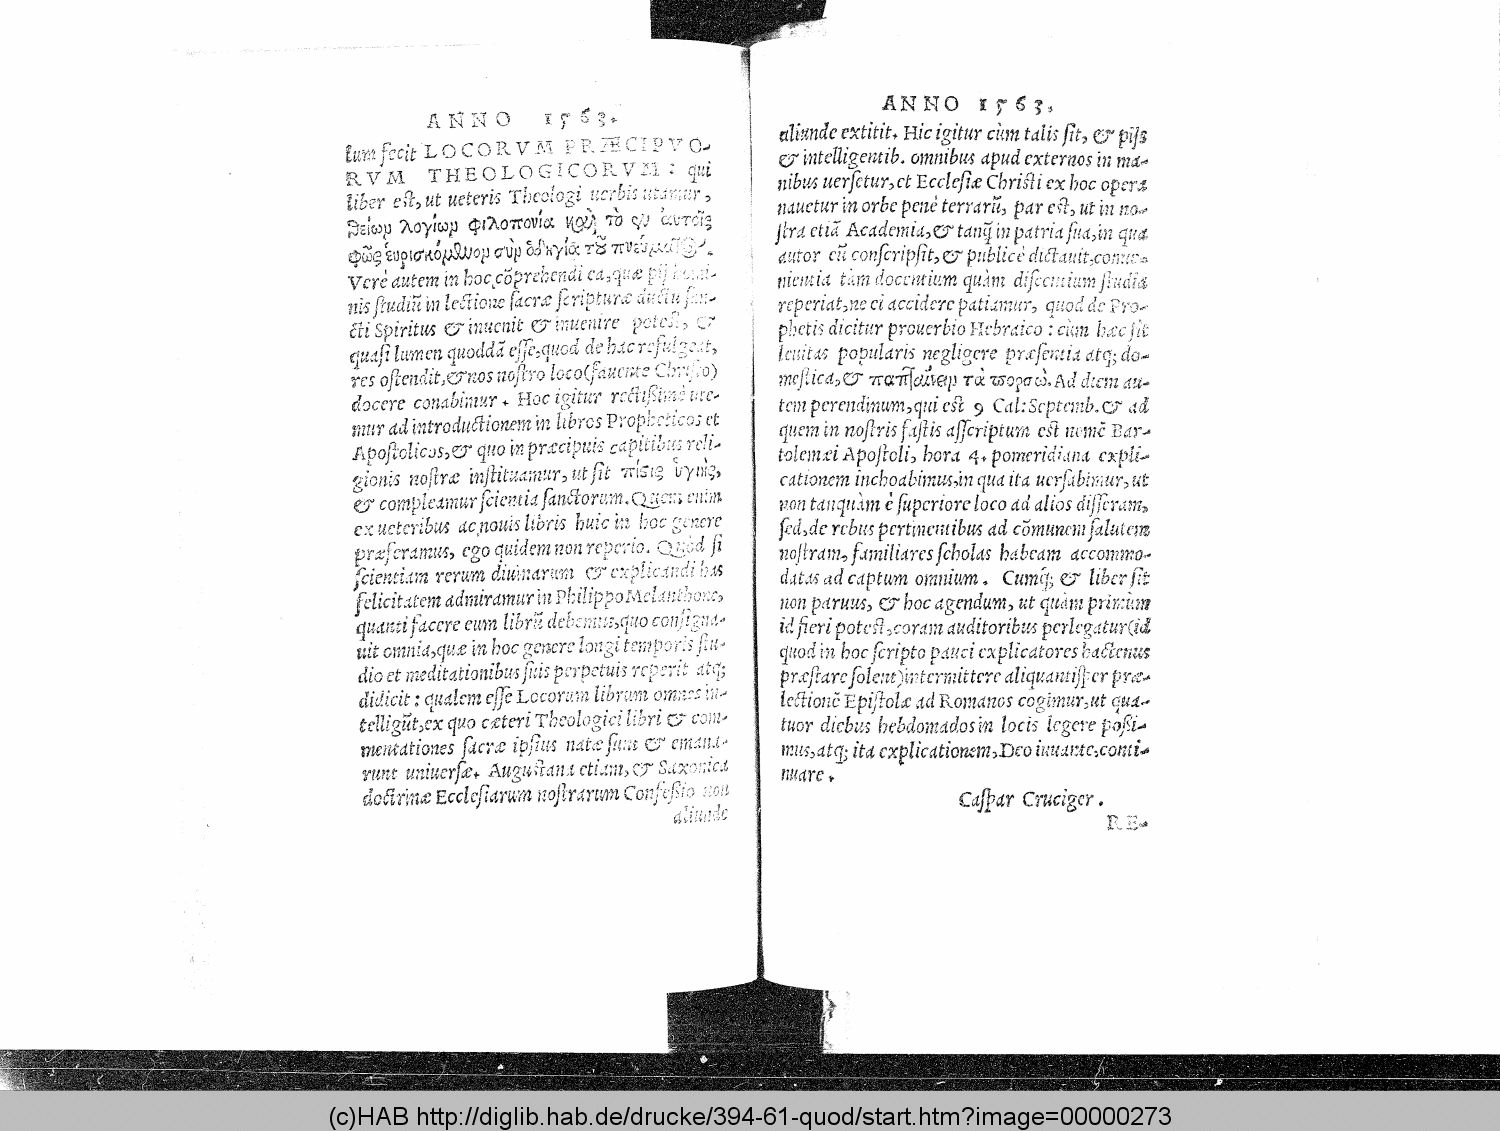 ANNO 1563.
tum fecit LOCORVM PRÆCIPVO-
RVM THEOLOGICORVM: qui
liber est, ut ueteris Theologi uerbis utamur,
θείωμ λογίωμ φιλοπονία καὶ τὸ ἐν αὐτοῖς
φῶς εὑρισκόμθμομ σὺμ ὁδηγίᾳ τοῦ πνεύματος.
Verè autem in hoc cõprehendi ea, quæ pij homi-
nis studiũ in lectione sacræ scripturæ ductu san-
cti Spiritus & inuenit & inuenire potest, &
quasi lumen quoddã esse, quod de hac refulgeat,
res ostendit, & nos nostro loco (fauente Christo)
docere conabimur. Hoc igitur rectißimè ute-
mur ad introductionem in libros Propheticos et
Apostolicos, & quo in præcipuis capitibus reli-
gionis nostræ instituamur, ut sit πίςις ὑγιὴς,
& compleamur scientia sanctorum. Quem enim
ex ueteribus ac nouis libris huic in hoc genere
præferamus, ego quidem non reperio. Quòd si
scientiam rerum diuinarum & explicandi has
felicitatem admiramur in Philippo Melanthone,
quanti facere eum librũ debemus, quo consigna-
uit omnia, quæ in hoc genere longi temporis stu-
dio et meditationibus suis perpetuis reperit atq;
didicit: qualem esse Locorum librum omnes in-
telligũt, ex quo cæteri Theologici libri & com-
mentationes sacræ ipsius natæ sunt & emana-
runt uniuersæ. Augustana etiam, & Saxonica
doctrinæ Ecclesiarum nostrarum Confeßio non
aliunde
ANNO 1563.
aliunde extitit. Hic igitur cùm talis sit, & pijs
& intelligentib. omnibus apud externos in ma-
nibus uersetur, et Ecclesiæ Christi ex hoc opera
nauetur in orbe penè terrarũ, par est, ut in no-
stra etiã Academia, & tanq̃ in patria sua, in qua
autor eũ conscripsit, & publicè dictauit, conue-
nientia tàm docentium quàm discentium studia
reperiat, ne ei accidere patiamur, quod de Pro-
phetis dicitur prouerbio Hebraico: cùm hæc sit
leuitas popularis negligere præsentia atq; do-
mestica, & παπταίνειμ τὰ πόρσω. Ad diem au-
tem perendinum, qui est 9 Cal: Septemb. & ad
quem in nostris fastis asscriptum est nomẽ Bar-
tolemæi Apostoli, hora 4. pomeridiana expli-
cationem inchoabimus, in qua ita uersabimur, ut
non tanquàm è superiore loco ad alios disseram,
sed, de rebus pertinentibus ad cõmunem salutem
nostram, familiares scholas habeam accommo-
datas ad captum omnium. Cumq; & liber sit
non paruus, & hoc agendum, ut quàm primùm
id fieri potest, coram auditoribus perlegatur (id
quod in hoc scripto pauci explicatores hactenus
præstare solent) intermittere aliquantisper præ-
lectionẽ Epistolæ ad Romanos cogimur, ut qua-
tuor diebus hebdomados in locis legere poßi-
mus, atq; ita explicationem, Deo iuuante, conti-
nuare.
Caspar Cruciger.
RE-
(c)HAB http://diglib.hab.de/drucke/394-61-quod/start.htm?image=00000273